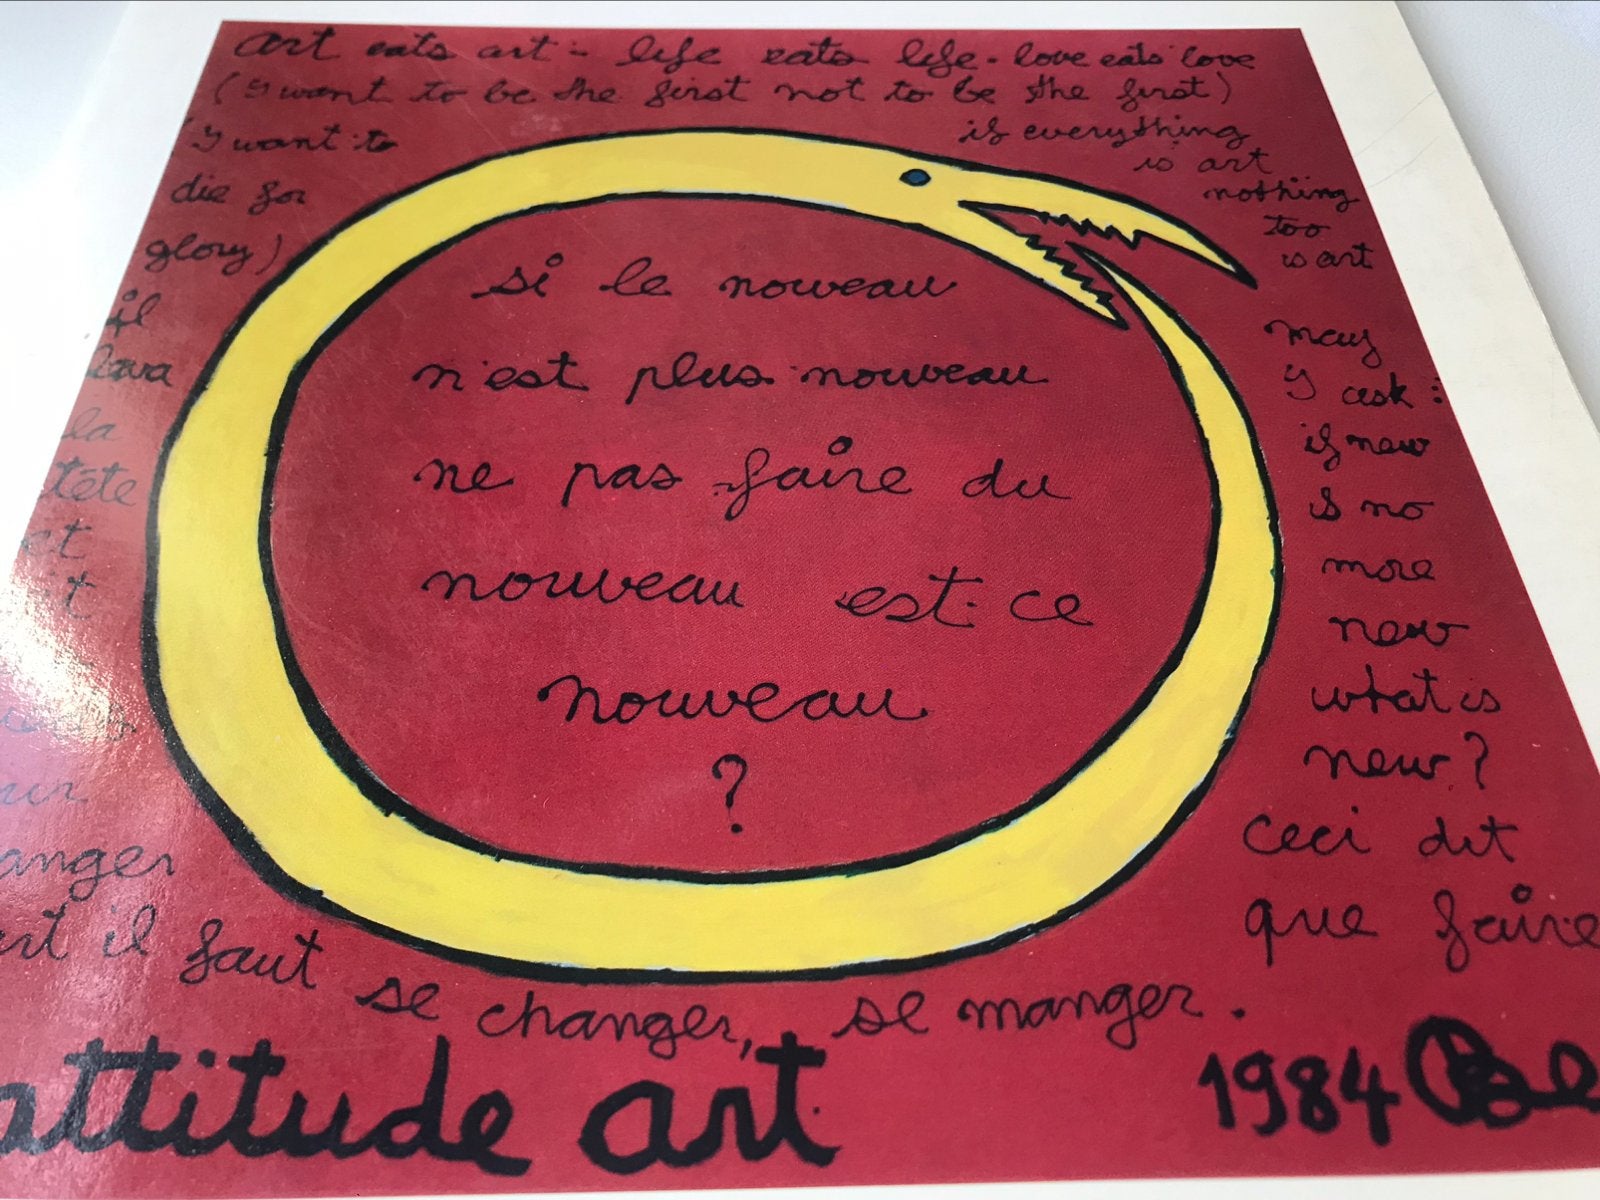 art eats art - life eats life - love eats love
(I want to be the first not to be the first)
(I want to
die for
glory)
if everything
is art
nothing
too
is art
si le nouveau
n'est plus nouveau
ne pas faire du
nouveau est-ce
nouveau
?
may
I ask :
if new
is no
more
new
what is
new?
ceci dit
que faire
il
lava
la
tête
et
anger
art il faut se changer, se manger.
attitude art
1984 Be